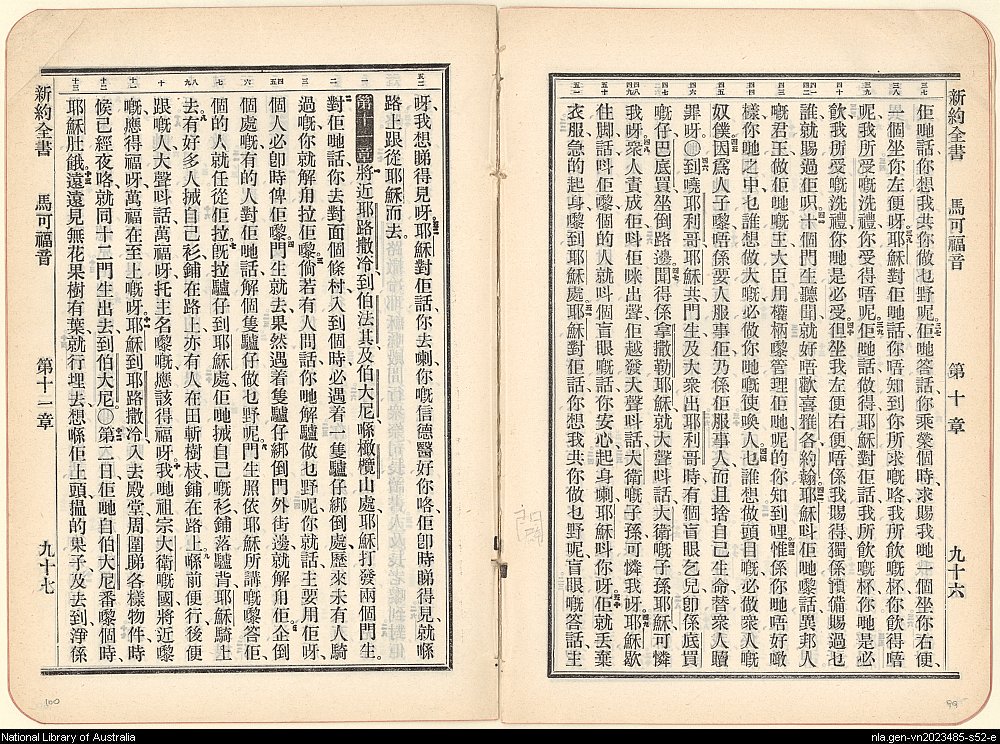 新約全書 馬可福音 第十章 九十六
佢哋話你想我共你做乜野呢佢哋答話你乘榮個時求賜我哋一個坐你右便、
一個坐你左便呀耶穌對佢哋話你唔知到你所求嘅咯我所飲嘅杯你飲得唔
呢我所受嘅洗禮你受得唔呢佢哋話做得耶穌對佢話我所飲嘅杯你哋是必
飲我所受嘅洗禮你哋是必受但坐我左便右便唔係我賜得獨係預備賜過乜
誰就賜過佢呮十個門生聽聞就好唔歡喜雅各約翰耶穌呌佢哋嚟話異邦人
嘅君王做佢哋嘅主大臣用權柄嚟管理佢哋呢的你知到哩惟係你哋唔好噉
樣你哋之中乜誰想做大嘅必做你哋嘅使喚人乜誰想做頭目嘅必做衆人嘅
奴僕因爲人子嚟唔係要人服事佢乃係佢服事人而且捨自己生命替衆人贖
罪呀○到曉耶利哥耶穌共門生及大衆出耶利哥時有個盲眼乞兒卽係底買
嘅仔巴底買坐倒路邊聞得係拿撒勒耶穌就大聲呌話大衛嘅子孫耶穌可憐
我呀衆人責成佢呌佢咪出聲佢越發大聲呌話大衛嘅子孫可憐我呀耶穌歇
住脚話呌佢嚟個的人就呌個盲眼嘅話你安心起身喇耶穌呌你呀佢就丟棄
衣服急的起身嚟到耶穌處耶穌對佢話你想我共你做乜野呢盲眼嘅答話主
99
呀我想睇得見呀耶穌對佢話你去喇你嘅信德醫好你咯佢卽時睇得見就喺
路上跟從耶穌而去
第十一章將近耶路撒冷到伯法其及伯大尼喺橄欖山處耶穌打發兩個門生。
對佢哋話你去對面個條村入到個時必遇着一隻驢仔綁倒處歷來未有人騎
過嘅你就解用拉佢嚟倘若有人問話你哋解驢做乜野呢你就話主要用佢呀、
個人必卽時俾佢嚟門生就去果然遇着隻驢仔綁倒門外街邊就解用佢企倒
個處嘅有的人對佢哋話解個隻驢仔做乜野呢門生照依耶穌所講嘅嚟答佢、
個的人就任從佢拉旣拉驢仔到耶穌處佢哋搣自己嘅衫鋪落驢背耶穌騎上
去有好多人搣自己衫鋪在路上亦有人在田斬樹枝鋪在路上喺前便行後便
跟嘅人大聲呌話萬福呀托主名嚟嘅應該得福呀我哋祖宗大衛嘅國將近嚟
嘅應得福呀萬福在至上嘅呀耶穌到耶路撒冷入去殿堂周圍睇各樣物件時
候已經夜咯就同十二門生出去到伯大尼。○第二日佢哋自伯大尼番嚟個時
耶穌肚餓遠遠見無花果樹有葉就行埋去想喺佢上頭搵的果子及去到淨係
新約全書 馬可福音 第十一章 九十七
100
National Library of Australia
nla.gen-vn2023485-s52-e